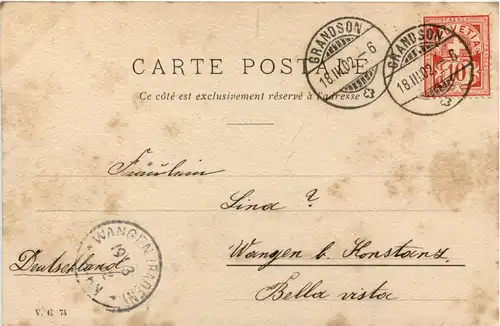 HELVETIA
10
GRANDSON
18.III.02.-6
GRANDSON
18.III.02.-6
CARTE POSTALE
Ce côté est exclusivement réservé à l'adresse
Fräulein
Lina ?
WANGEN (BADEN)
Wangen b. Konstanz
Deutschland
Bella vista
V. G. 74